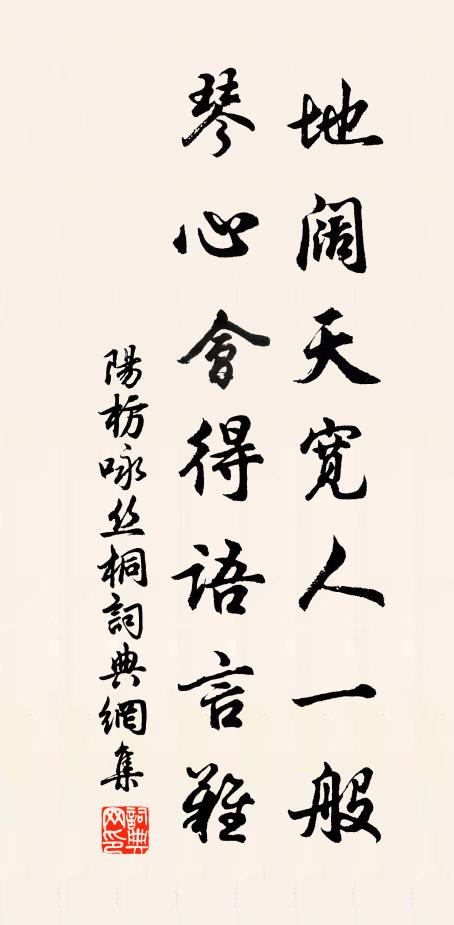 地阔天宽人一般
琴心會得語言難
陽枋咏丝桐詞典網集
詞典網印